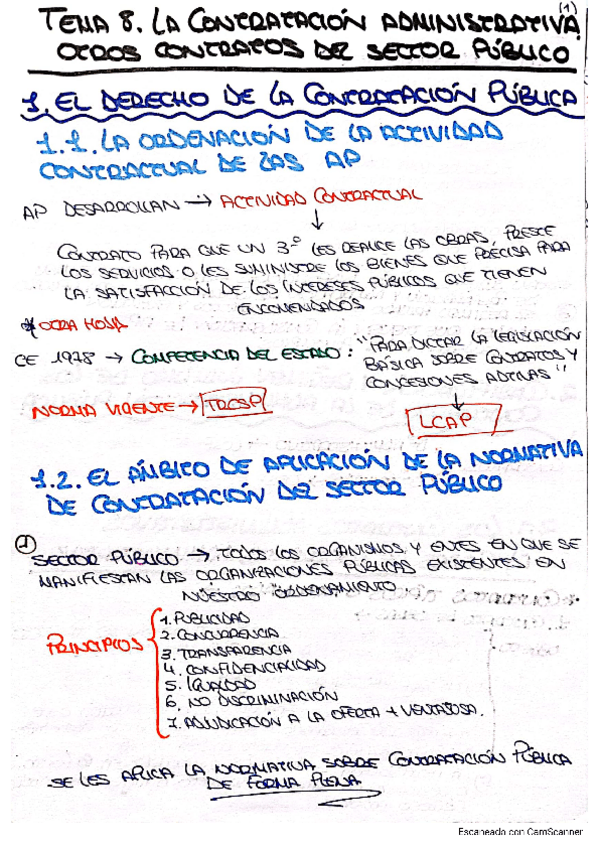 (1)
TEMA 8. LA CONTRATACIÓN ADMINISTRATIVA.
OTROS CONTRATOS DEL SECTOR PÚBLICO
1. EL DERECHO DE LA CONTRATACIÓN PÚBLICA
1.1. LA ORDENACIÓN DE LA ACTIVIDAD
CONTRACTUAL DE LAS AP
AP DESARROLLAN → ACTIVIDAD CONTRACTUAL
↓
CONTRATO PARA QUE UN 3º LES REALICE LAS OBRAS, PRESTE
LOS SERVICIOS O LES SUMINISTRE LOS BIENES QUE PRECISA PARA
LA SATISFACCIÓN DE LOS INTERESES PÚBLICOS QUE TIENEN
ENCOMENDADOS
* OTRA HOJA
CE 1978 → COMPETENCIA DEL ESTADO: "PARA DICTAR LA LEGISLACIÓN
BÁSICA SOBRE CONTRATOS Y
CONCESIONES ADTIVAS"
↓
NORMA VIGENTE → TRCSP
LCAP
1.2. EL ÁMBITO DE APLICACIÓN DE LA NORMATIVA
DE CONTRATACIÓN DEL SECTOR PÚBLICO
①
SECTOR PÚBLICO → TODOS LOS ORGANISMOS Y ENTES EN QUE SE
MANIFIESTAN LAS ORGANIZACIONES PÚBLICAS EXISTENTES EN
NUESTRO ORDENAMIENTO
PRINCIPIOS
1. PUBLICIDAD
2. CONCURRENCIA
3. TRANSPARENCIA
4. CONFIDENCIALIDAD
5. IGUALDAD
6. NO DISCRIMINACIÓN
7. ADJUDICACIÓN A LA OFERTA + VENTAJOSA.
SE LES APLICA LA NORMATIVA SOBRE CONTRATACIÓN PÚBLICA
DE FORMA PLENA
Escaneado con CamScanner